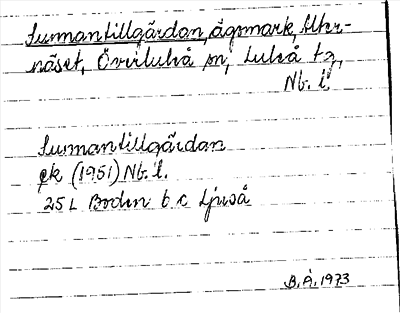 Sunnantillgärdan, ägomark, Alter-
näset, Överluleå sn, Luleå tg,
Nb. l.
Sunnantillgärdan
ek (1951) Nb. l.
25 L Boden 6 c Ljuså
B.Å. 1973